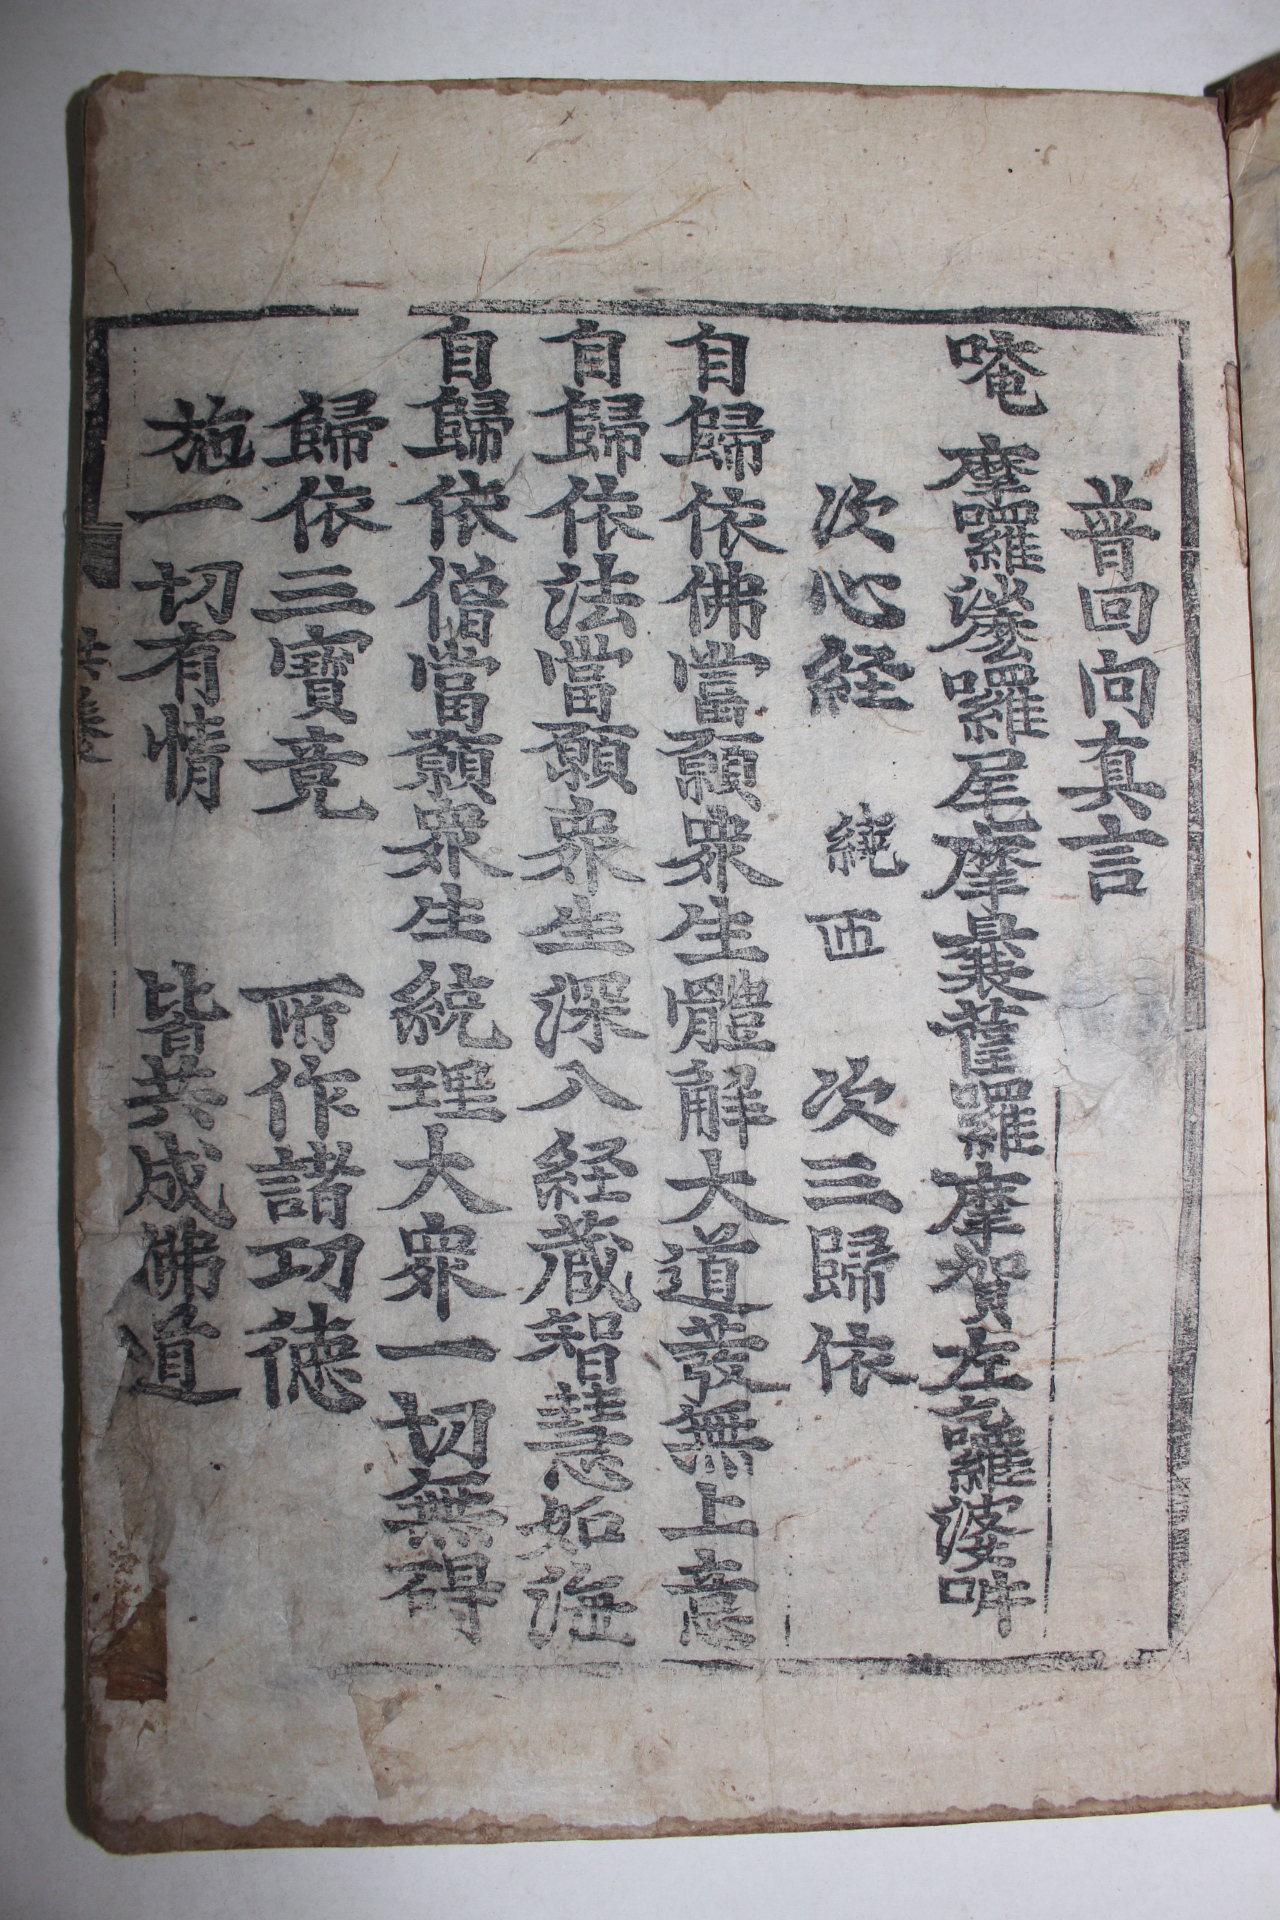 普回向真言
唵 摩囉攞尾摩曩薩囉摩賀左囉婆吽
次心経 繞匝 次三歸依
自歸依佛當願衆生體解大道發無上意
自歸依法當願衆生深入経蔵智慧如海
自歸依僧當願衆生統理大衆一切無碍
歸依三寶竟 所作諸功德
施一切有情 皆共成佛道